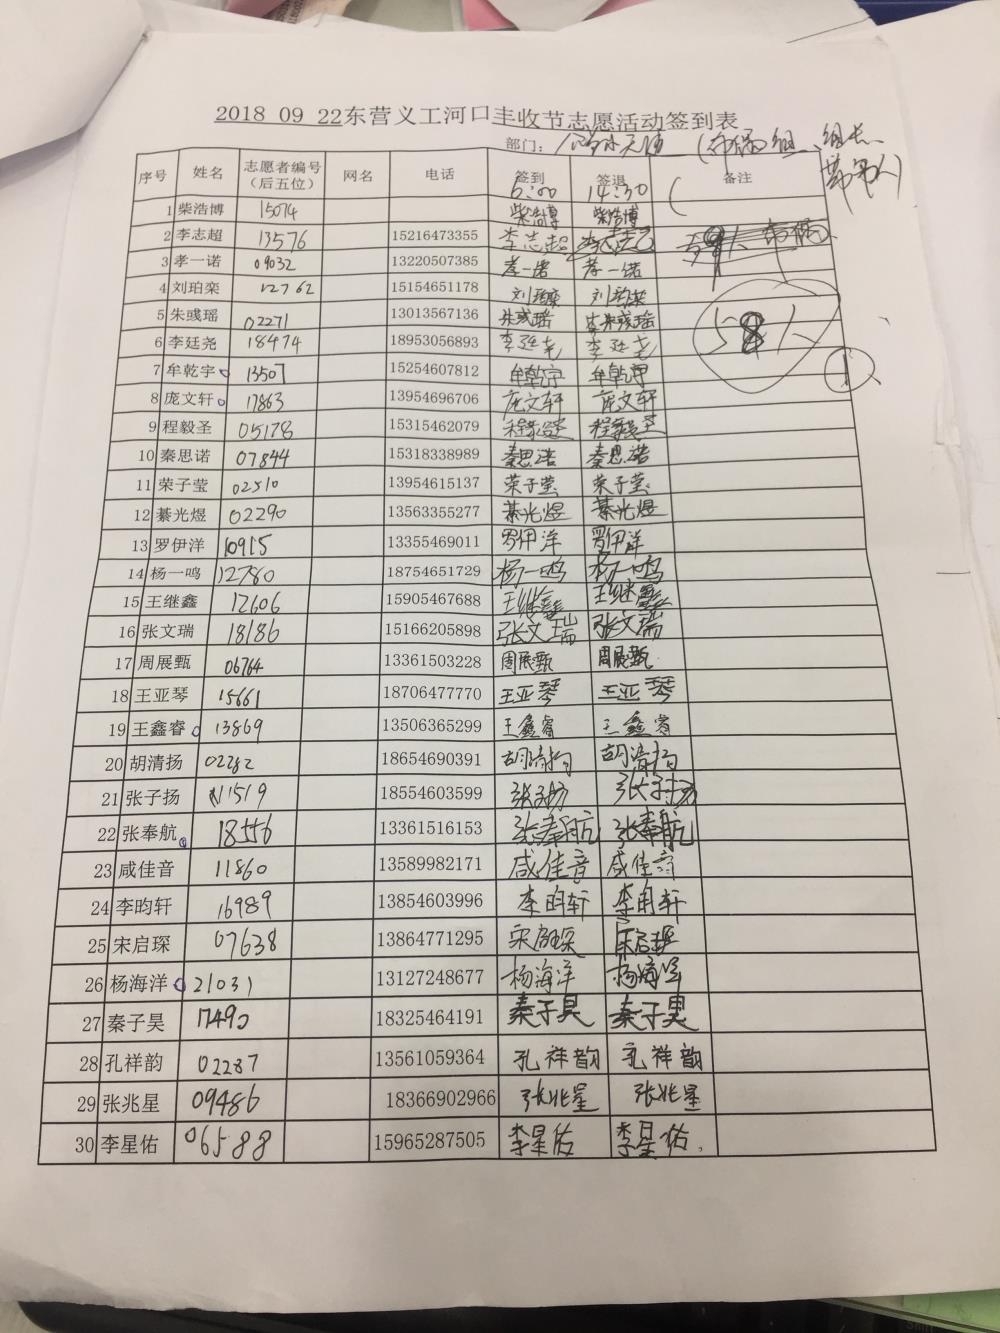 2018 09 22东营义工河口丰收节志愿活动签到表
部门:
序号 姓名 志愿者编号(后五位) 网名 电话 签到 签退 备注
6:00 14:30
1 柴浩博 15074 柴浩博 柴浩博
2 李志超 13576 15216473355 李志超
3 孝一诺 09032 13220507385 孝一诺 孝一诺
4 刘珀栾 12762 15154651178 刘珀栾
5 朱彧瑶 02271 13013567136 朱彧瑶 朱彧瑶
58人
6 李廷尧 18474 18953056893 李廷尧 李廷尧
7 牟乾宇 13507 15254607812 牟乾宇 牟乾宇
8 庞文轩 17863 13954696706 庞文轩 庞文轩
9 程毅圣 05178 15315462079 程毅圣 程毅圣
10 秦思诺 07844 15318338989 秦思诺 秦思诺
11 荣子莹 02510 13954615137 荣子莹 荣子莹
12 綦光煜 02290 13563355277 綦光煜 綦光煜
13 罗伊洋 10915 13355469011 罗伊洋 罗伊洋
14 杨一鸣 12780 18754651729 杨一鸣 杨一鸣
15 王继鑫 12606 15905467688 王继鑫 王继鑫
16 张文瑞 18186 15166205898 张文瑞 张文瑞
17 周展甄 06764 13361503228 周展甄 周展甄
18 王亚琴 15661 18706477770 王亚琴 王亚琴
19 王鑫睿 13869 13506365299 王鑫睿 王鑫睿
20 胡清扬 02282 18654690391 胡清扬 胡清扬
21 张子扬 11519 18554603599 张子扬 张子扬
22 张奉航 18556 13361516153 张奉航 张奉航
23 咸佳音 11860 13589982171 咸佳音 咸佳音
24 李昀轩 16989 13854603996 李昀轩 李昀轩
25 宋启琛 07638 13864771295 宋启琛 宋启琛
26 杨海洋 21031 13127248677 杨海洋 杨海洋
27 秦子昊 17490 18325464191 秦子昊 秦子昊
28 孔祥韵 02287 13561059364 孔祥韵 孔祥韵
29 张兆星 09486 18366902966 张兆星 张兆星
30 李星佑 06588 15965287505 李星佑 李星佑